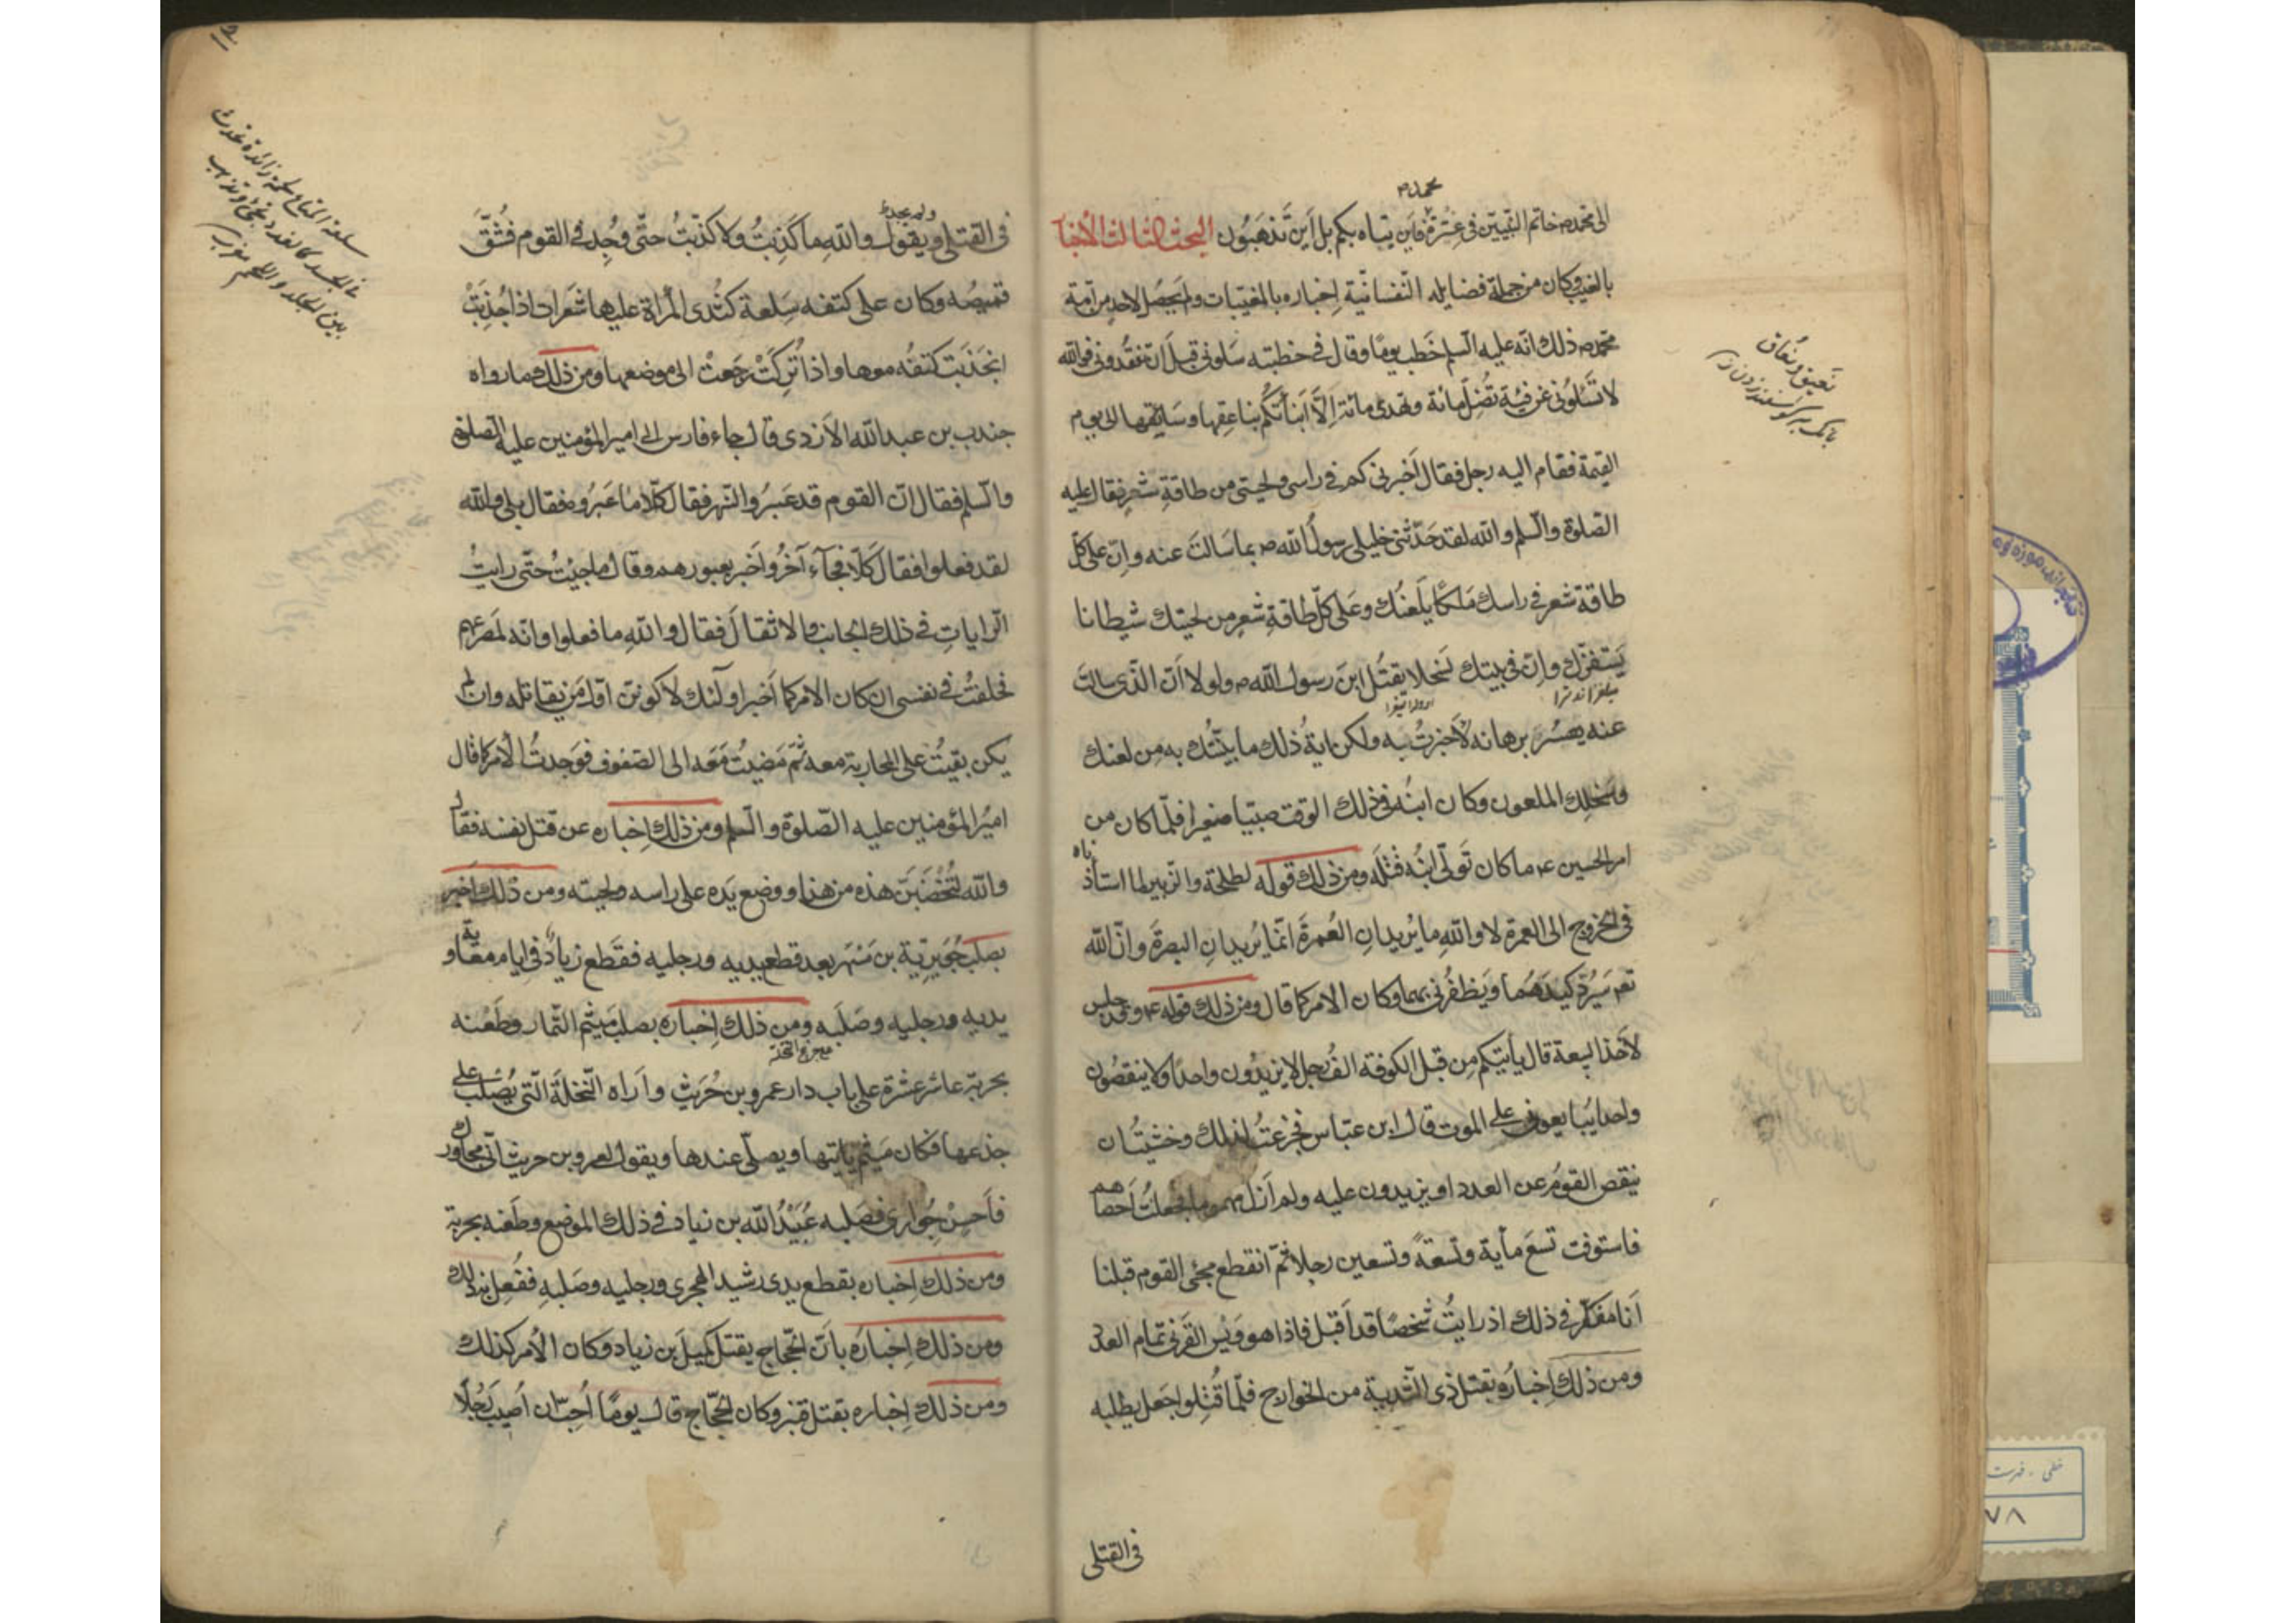 محمد ص
الى محمد ص خاتم النبيين فى عترة فاين يتاه بكم بل اين تذهبون البحث الثالث الاخبار
بالغيب وكان من جملة فضايله النفسانية اخباره بالمغيبات ولم يحصل لاحد من امة
محمد ص ذلك انه عليه السلم خطب يومًا وقال فى خطبته سلونى قبل ان تفقدونى فوالله
لا تسئلونى عن فئة تضل مائة وتهدى مائة الا انبأتكم بناعقها وسايقها الى يوم
القيمة فقام اليه رجل فقال اخبرنى كم فى راسى ولحيتى من طاقة شعر فقال عليه
الصلوة والسلم والله لقد حدثنى خليلى رسول الله ص بما سالت عنه وان على كل
طاقة شعر فى راسك ملكًا يلعنك وعلى كل طاقة شعر من لحيتك شيطانا
يستفزك وان فى بيتك لسخلا يقتل ابن رسول الله ص ولولا ان الذى سالت
عنه يعسر برهانه لاخبرت به ولكن اية ذلك ما نبئتك به من لعنك
وسخلك الملعون وكان ابنه فى ذلك الوقت صبيا صغيرا فلما كان من
امر الحسين ع ما كان تولى ابنه قتله ومن ذلك قوله لطلحة والزبير لما استأذناه
فى الخروج الى العمرة لا والله ما يريدان العمرة انما يريدان البصرة وان الله
تعم سيرد كيدهما ويظفرنى بهما وكان الامر كما قال ومن ذلك قوله ع وقد جلس
لاخذ البيعة قال يأتيكم من قبل الكوفة الف رجل لا يزيدون واحدًا ولا ينقصون
واحدا يبايعونى على الموت قال ابن عباس فجزعت لذلك وخشيت ان
ينقص القوم عن العدد او يزيدون عليه ولم ازل مهموما فجعلت احصاهم
فاستوفت تسع مأية وتسعةً وتسعين رجلا ثم انقطع مجئ القوم قبلنا
انا مفكر فى ذلك اذ رايت شخصًا قد اقبل فاذا هو ويس القرنى تمام العدد
ومن ذلك اخباره بقتل ذى الثدية من الخوارج فلما قتلوا جعل يطلبه
فى القتلى
نعيق ونعاق
بانك بر كوسفند زدن
ولم يجده
فى القتلى ويقول والله ما كذبت ولا كذبت حتى وجد فى القوم فشق
قميصه وكان على كتفه سلعة كثدى المراة عليها شعرات اذا جذبت
انجذبت كتفه معها واذا تركت رجعت الى موضعها ومن ذلك ما رواه
جندب بن عبد الله الازدى قال جاء فارس الى امير المؤمنين عليه الصلوة
والسلم فقال ان القوم قد عبروا النهر فقال كلا ما عبروه فقال بلى والله
لقد فعلوا فقال كلا فجاء آخر واخبر بعبورهم وقال ما جيئت حتى رايت
الرايات فى ذلك الجانب والاثقال فقال والله ما فعلوا وانه لمصرعهم
فحلفت فى نفسى ان كان الامر كما اخبر اولئك لاكونن اول من يقاتله وان لم
يكن بقيت على المحاربة معه ثم مضيت معه الى الصفوف فوجدت الامر كما قال
امير المؤمنين عليه الصلوة والسلم ومن ذلك اخباره عن قتل نفسه فقال
والله لتخضبن هذه من هذا ووضع يده على راسه ولحيته ومن ذلك اخبر
بصلب جويرية بن مسهر بعد قطع يديه ورجليه فقطع زياد فى ايام معاوية
يديه ورجليه وصلبه ومن ذلك اخباره بصلب ميثم التمار وطعنه
بحربة عاشر عشرة على باب دار عمرو بن حريث واراه النخلة التى يصلب على
جذعها فكان ميثم ياتيها ويصلى عندها ويقول لعمرو بن حريث انى مجاورك
فاحسن جوارى فصلبه عبيد الله بن زياد فى ذلك الموضع وطعنه بحربة
ومن ذلك اخباره بقطع يدى رشيد الهجرى ورجليه وصلبه ففعل بذلك
ومن ذلك اخباره بان الحجاج يقتل كميل بن زياد وكان الامر كذلك
ومن ذلك اخباره بقتل قنبر وكان الحجاج قال يومًا احب ان اصيب رجلًا
سلعة المتاع وسلعة زائدة تحدث
فى الجسد كالغدد تجئ وتذهب
بين الجلد واللحم مغرب
خطى - فهرست
٧٨